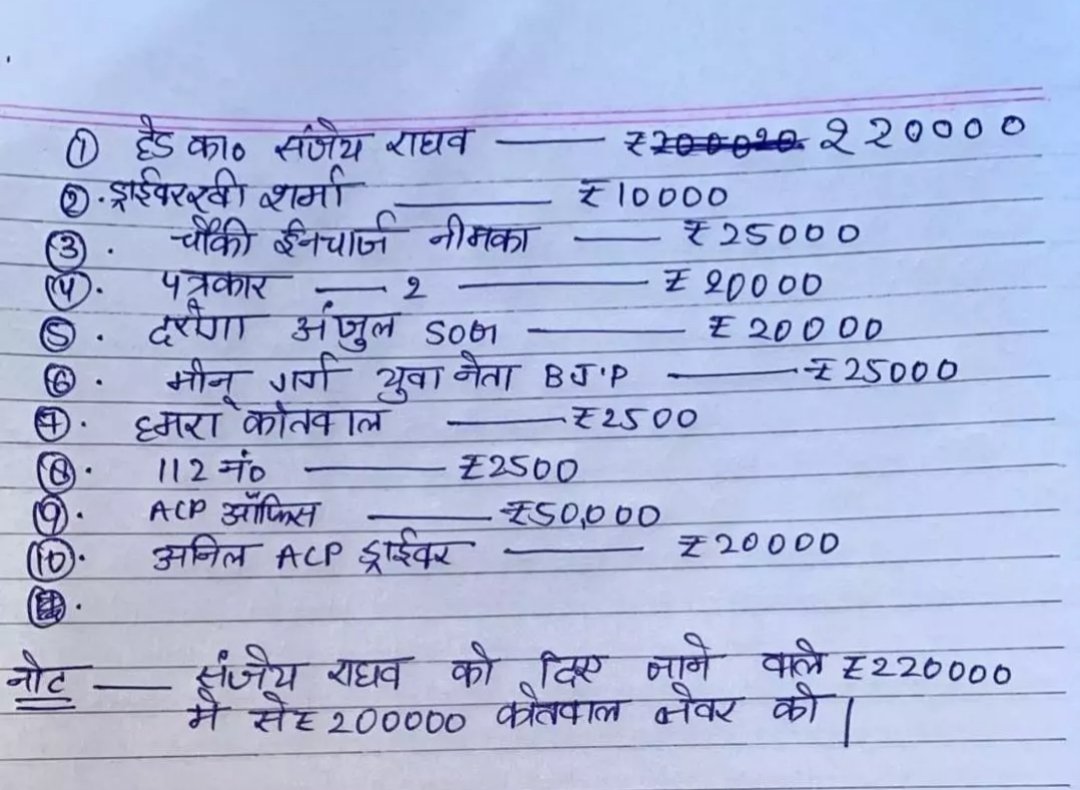 ① हेड का० संजेय राघव —— ₹2̶0̶0̶0̶2̶0̶ 220000
②. ड्राईवर रवी शर्मा —— ₹10000
③. चौकी ईनचार्ज नीमका —— ₹25000
④. पत्रकार — 2 —— ₹20000
⑤. दरोगा अंजुल SOG —— ₹20000
⑥. मोनू गर्ग युवा नेता BJ.P —— ₹25000
⑦. हमरा कोतवाल —— ₹2500
⑧. 112 नं० —— ₹2500
⑨. ACP ऑफिस —— ₹50,000
⑩. अनिल ACP ड्राईवर —— ₹20000
नोट —— संजेय राघव को दिए जाने वाले ₹220000
मे से ₹200000 कोतवाल जेवर को |